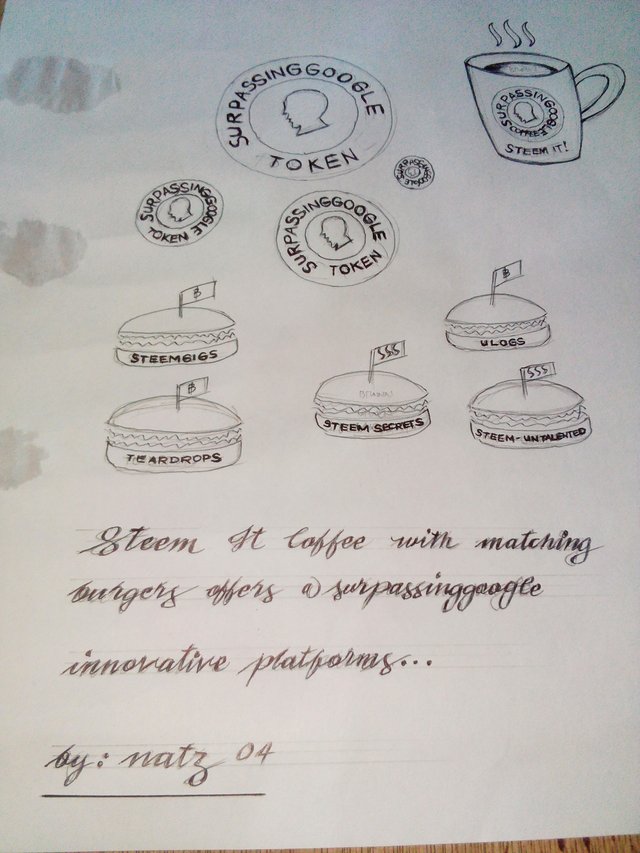 SURPASSINGGOOGLE
TOKEN
SURPASSINGGOOGLE
COFFEE
STEEM IT!
SURPASSINGGOOGLE
SURPASSINGGOOGLE
TOKEN
SURPASSINGGOOGLE
TOKEN
B
STEEMGIGS
B
ULOGS
SSS
STEEM SECRETS
B
TEARDROPS
SSS
STEEM-UNTALENTED
Steem It Coffee with matching
burgers offers @surpassinggoogle
innovative platforms...
by: natz 04